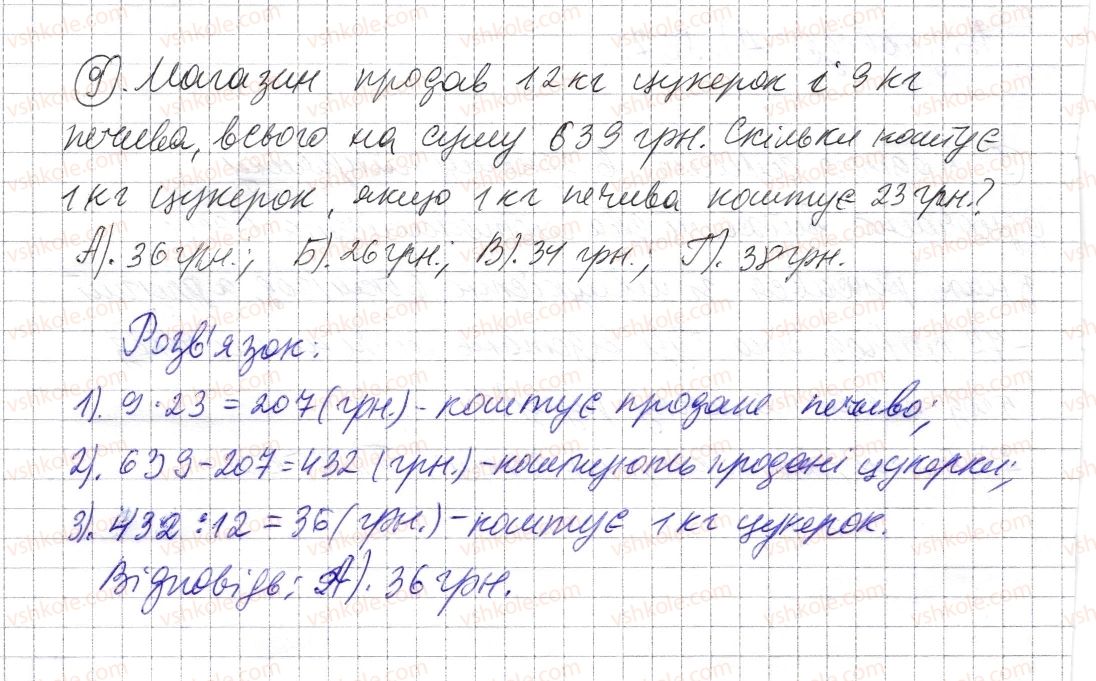 9). Магазин продав 12 кг цукерок і 9 кг
печива, всього на суму 639 грн. Скільки коштує
1 кг цукерок, якщо 1 кг печива коштує 23 грн.?
А). 36 грн.; Б). 26 грн.; В). 34 грн.; Г). 38 грн.
Розв'язок:
1). 9 · 23 = 207 (грн.) - коштує продане печиво;
2). 639 - 207 = 432 (грн.) - коштують продані цукерки;
3). 432 : 12 = 36 (грн.) - коштує 1 кг цукерок.
Відповідь: А). 36 грн.